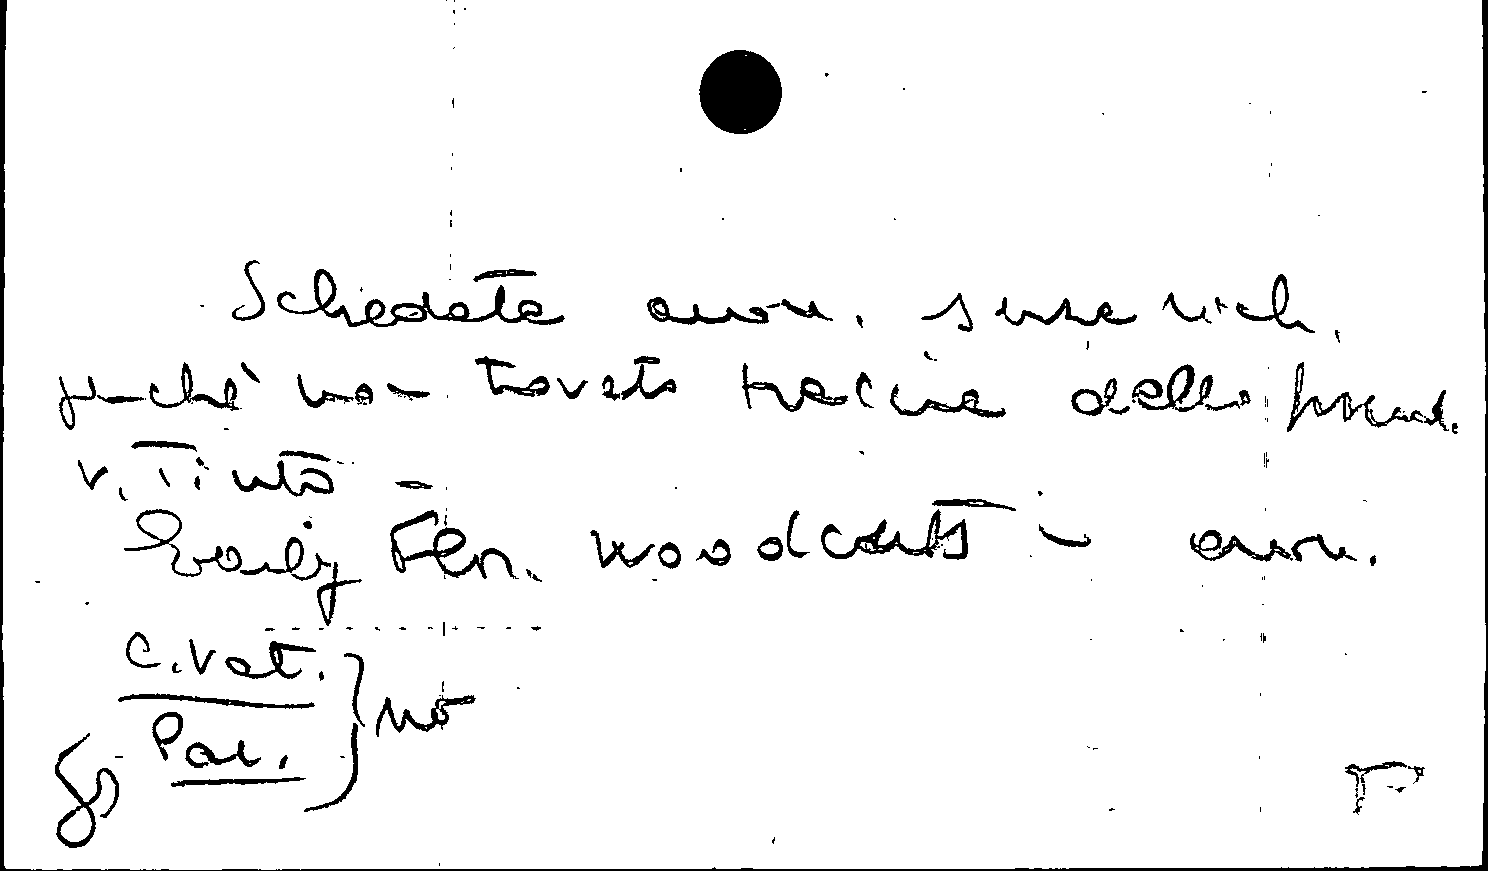 Schedata anon. senza rich.
perché non trovato traccia dello pseud.
v. Tinto -
Early Flor. woodcuts - anon.
C. Vat.
Par. } no